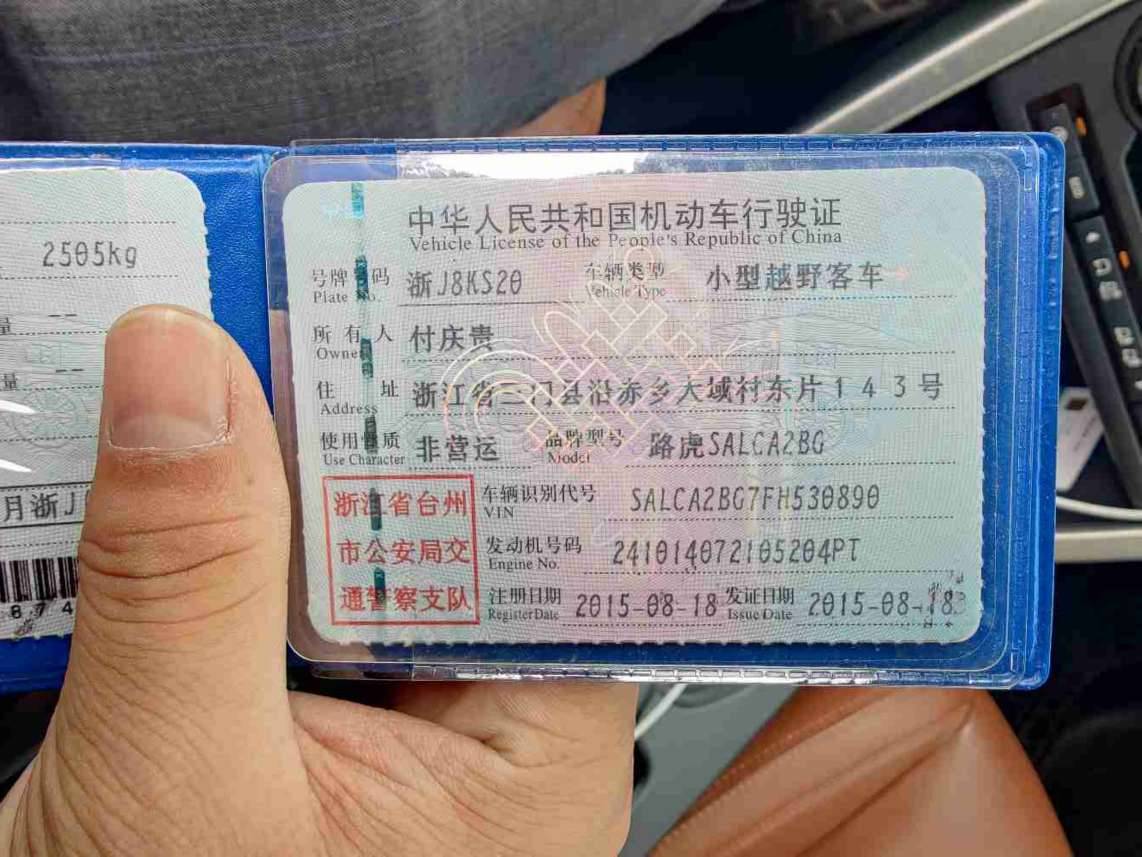 2505kg
量 --
量 --
月浙J
874
中华人民共和国机动车行驶证
Vehicle License of the People's Republic of China
号牌号码 浙J8KS20 车辆类型 小型越野客车
Plate No. Vehicle Type
所有人 付庆贵
Owner
住址 浙江省三门县沿赤乡大域村东片143号
Address
使用性质 非营运 品牌型号 路虎SALCA2BG
Use Character Model
浙江省台州
市公安局交
通警察支队
车辆识别代号 SALCA2BG7FH530890
VIN
发动机号码 241014072105204PT
Engine No.
注册日期 2015-08-18 发证日期 2015-08-18
Register Date Issue Date